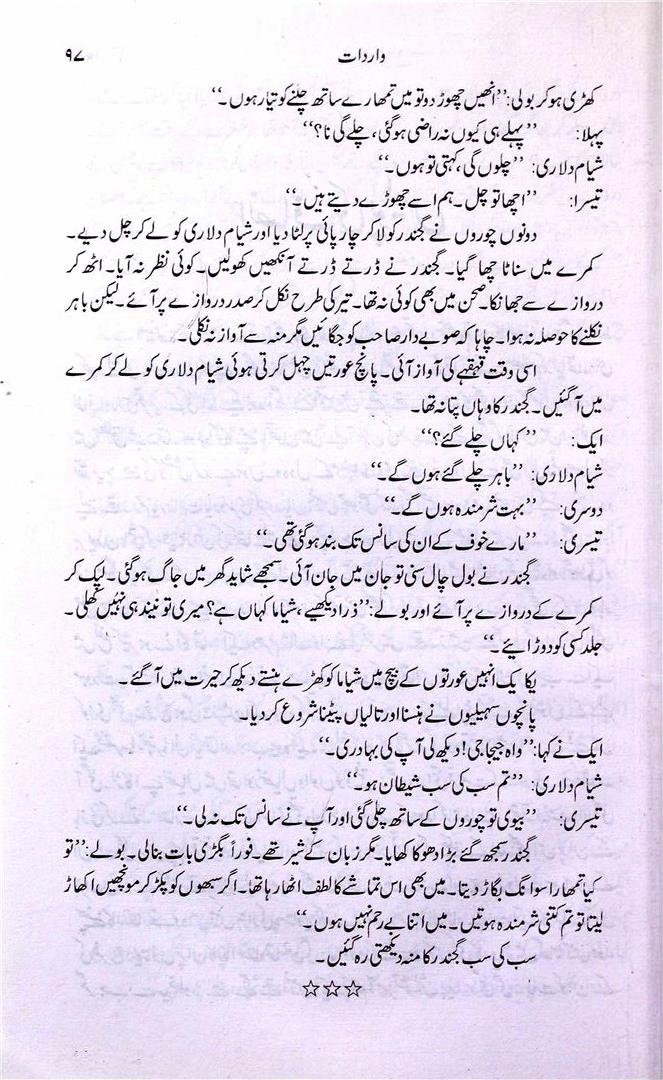 واردات
۹۷
کھڑی ہوکر بولی: ’’انھیں چھوڑ دو تو میں تمھارے ساتھ چلنے کو تیار ہوں۔‘‘
پہلا: ’’پہلے ہی کیوں نہ راضی ہوگئی، چلے گی نا؟‘‘
شیام دلاری: ’’چلوں گی، کہتی تو ہوں۔‘‘
تیسرا: ’’اچھا تو چل۔ ہم اسے چھوڑے دیتے ہیں۔‘‘
دونوں چوروں نے گجندر کو لا کر چارپائی پر لٹا دیا اور شیام دلاری کو لے کر چل دیے۔
کمرے میں سناٹا چھا گیا۔ گجندر نے ڈرتے ڈرتے آنکھیں کھولیں۔ کوئی نظر نہ آیا۔ اٹھ کر
دروازے سے جھانکا۔ صحن میں بھی کوئی نہ تھا۔ تیر کی طرح نکل کر صدر دروازے پر آئے۔ لیکن باہر
نکلنے کا حوصلہ نہ ہوا۔ چاہا کہ صوبے دار صاحب کو جگائیں مگر منہ سے آواز نہ نکلی۔
اسی وقت قہقہے کی آواز آئی۔ پانچ عورتیں چہل کرتی ہوئی شیام دلاری کو لے کر کمرے
میں آگئیں۔ گجندر کا وہاں پتا نہ تھا۔
ایک: ’’کہاں چلے گئے؟‘‘
شیام دلاری: ’’باہر چلے گئے ہوں گے۔‘‘
دوسری: ’’بہت شرمندہ ہوں گے۔‘‘
تیسری: ’’مارے خوف کے ان کی سانس تک بند ہوگئی تھی۔‘‘
گجندر نے بول چال سنی تو جان میں جان آئی۔ سمجھے شاید گھر میں جاگ ہوگئی۔ لپک کر
کمرے کے دروازے پر آئے اور بولے: ’’ذرا دیکھیے، شیاما کہاں ہے؟ میری تو نیند ہی نہیں کھلی۔
جلد کسی کو دوڑائیے۔‘‘
یکایک انہیں عورتوں کے بیچ میں شیاما کو کھڑے ہنستے دیکھ کر حیرت میں آگئے۔
پانچوں سہیلیوں نے ہنسنا اور تالیاں پیٹنا شروع کردیا۔
ایک نے کہا: ’’واہ جیجا جی! دیکھ لی آپ کی بہادری۔‘‘
شیام دلاری: ’’تم سب کی سب شیطان ہو۔‘‘
تیسری: ’’بیوی تو چوروں کے ساتھ چلی گئی اور آپ نے سانس تک نہ لی۔‘‘
گجندر سمجھ گئے بڑا دھوکا کھایا۔ مگر زبان کے شیر تھے۔ فوراً بگڑی بات بنالی۔ بولے: ’’تو
کیا تمھارا سوانگ بگاڑ دیتا۔ میں بھی اس تماشے کا لطف اٹھا رہا تھا۔ اگر سبھوں کو پکڑ کر مونچھیں اکھاڑ
لیتا تو تم کتنی شرمندہ ہوتیں۔ میں اتنا بے رحم نہیں ہوں۔‘‘
سب کی سب گجندر کا منہ دیکھتی رہ گئیں۔
☆☆☆